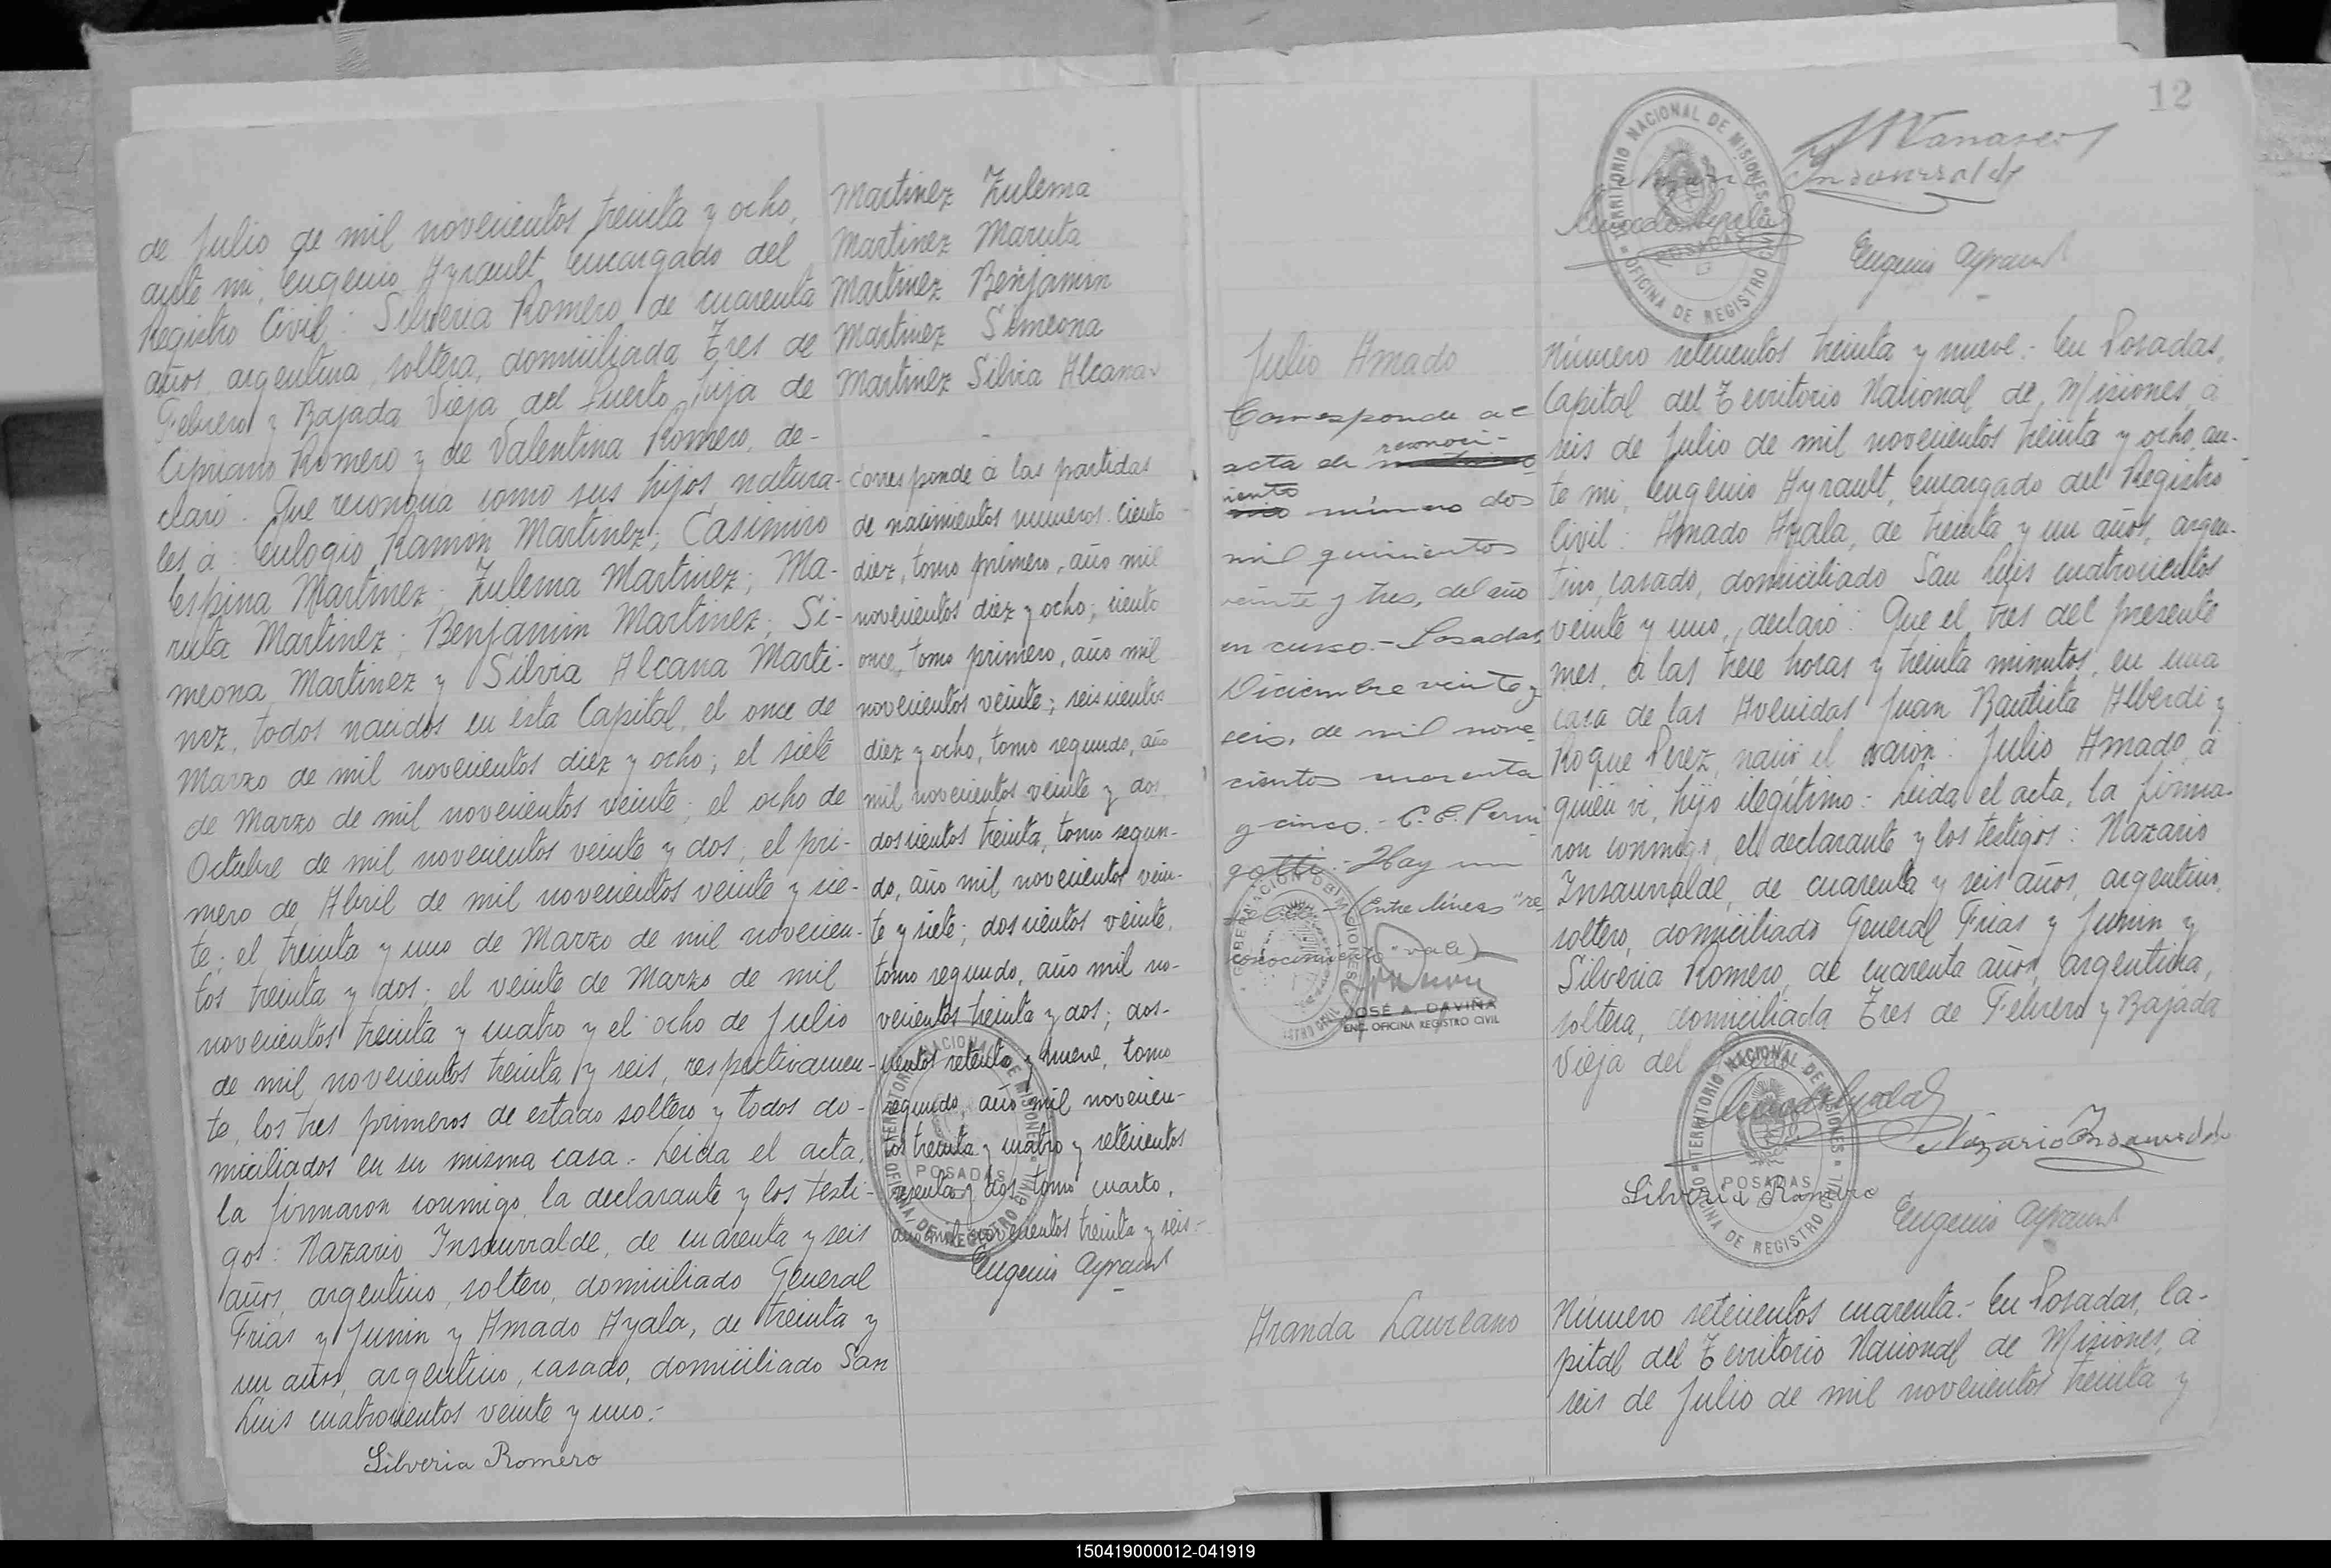 de Julio de mil novecientos treinta y ocho,
ante mi, Eugenio Ayrault, Encargado del
Registro Civil: Silveria Romero, de cuarenta
años, argentina, soltera, domiciliada Tres de
Febrero y Bajada Vieja del Puerto, hija de
Cipriano Romero y de Valentina Romero, de-
claró: Que reconocia como sus hijos natura-
les á: Eulogio Ramón Martinez; Casimiro
Espina Martinez; Zulema Martinez; Ma-
ruta Martinez; Benjamin Martinez; Si-
meona Martinez y Silvia Alcana Marti-
nez, todos nacidos en ésta Capital, el once de
Marzo de mil novecientos diez y ocho; el siete
de Marzo de mil novecientos veinte; el ocho de
Octubre de mil novecientos veinte y dos; el pri-
mero de Abril de mil novecientos veinte y sie-
te; el treinta y uno de Marzo de mil novecien-
tos treinta y dos; el veinte de Marzo de mil
novecientos treinta y cuatro y el ocho de Julio
de mil novecientos treinta y seis, respectivamen-
te, los tres primeros de estado soltero y todos do-
miciliados en su misma casa.- Leida el acta,
la firmaron conmigo, la declarante y los testi-
gos: Nazario Insaurralde, de cuarenta y seis
años, argentino, soltero, domiciliado General
Frias y Junin y Amado Ayala, de treinta y
un años, argentino, casado, domiciliado San
Luis cuatrocientos veinte y uno.-
Silveria Romero
Martinez Zulema
Martinez Maruta
Martinez Benjamin
Martinez Simeona
Martinez Silvia Alcana
Corresponde á las partidas
de nacimientos numeros: ciento
diez, tomo primero, año mil
novecientos diez y ocho; ciento
once, tomo primero, año mil
novecientos veinte; seiscientos
diez y ocho, tomo segundo, año
mil novecientos veinte y dos,
doscientos treinta, tomo segun-
do, año mil novecientos vein-
te y siete; doscientos veinte,
tomo segundo, año mil no-
vecientos treinta y dos; dos-
cientos setenta y nueve, tomo
segundo, año mil novecien-
tos treinta y cuatro y setecientos
sesenta y dos, tomo cuarto,
año mil novecientos treinta y seis.-
Eugenio Ayrault
TERRITORIO NACIONAL DE MISIONES
POSADAS
OFICINA DE REGISTRO CIVIL
12
Insaurralde
Amado Ayala
TERRITORIO NACIONAL DE MISIONES
POSADAS
OFICINA DE REGISTRO CIVIL
Eugenio Ayrault
Julio Amado
Corresponde al
reconoci-
acta de
miento
número dos
mil quinientos
veinte y tres, del año
en curso.- Posadas,
Diciembre veinte y
seis, de mil nove-
cientos cuarenta
y cinco.- C. E. Perni
gotti.- Hay un
(Entre líneas "re-
conocimiento" vale)
JOSÉ A. DAVIÑA
ENC. OFICINA REGISTRO CIVIL
Número setecientos treinta y nueve.- En Posadas,
Capital del Territorio Nacional de Misiones, á
seis de Julio de mil novecientos treinta y ocho, an-
te mi, Eugenio Ayrault, Encargado del Registro
Civil: Amado Ayala, de treinta y un años, argen-
tino, casado, domiciliado San Luis cuatrocientos
veinte y uno, declaró: Que el tres del presente
mes, á las trece horas y treinta minutos, en una
casa de las Avenidas Juan Bautista Alberdi y
Roque Perez, nació el varón: Julio Amado, á
quien vi, hijo ilegítimo.- Leida el acta, la firma-
ron conmigo, el declarante y los testigos: Nazario
Insaurralde, de cuarenta y seis años, argentino,
soltero, domiciliado General Frias y Junin y
Silveria Romero, de cuarenta años, argentina,
soltera, domiciliada Tres de Febrero y Bajada
Vieja del
Amado Ayala
Nazario Insaurralde
Silveria Romero
Eugenio Ayrault
TERRITORIO NACIONAL DE MISIONES
POSADAS
OFICINA DE REGISTRO CIVIL
Aranda Laureano
Número setecientos cuarenta.- En Posadas, Ca-
pital del Territorio Nacional de Misiones, á
seis de Julio de mil novecientos treinta y
150419000012-041919